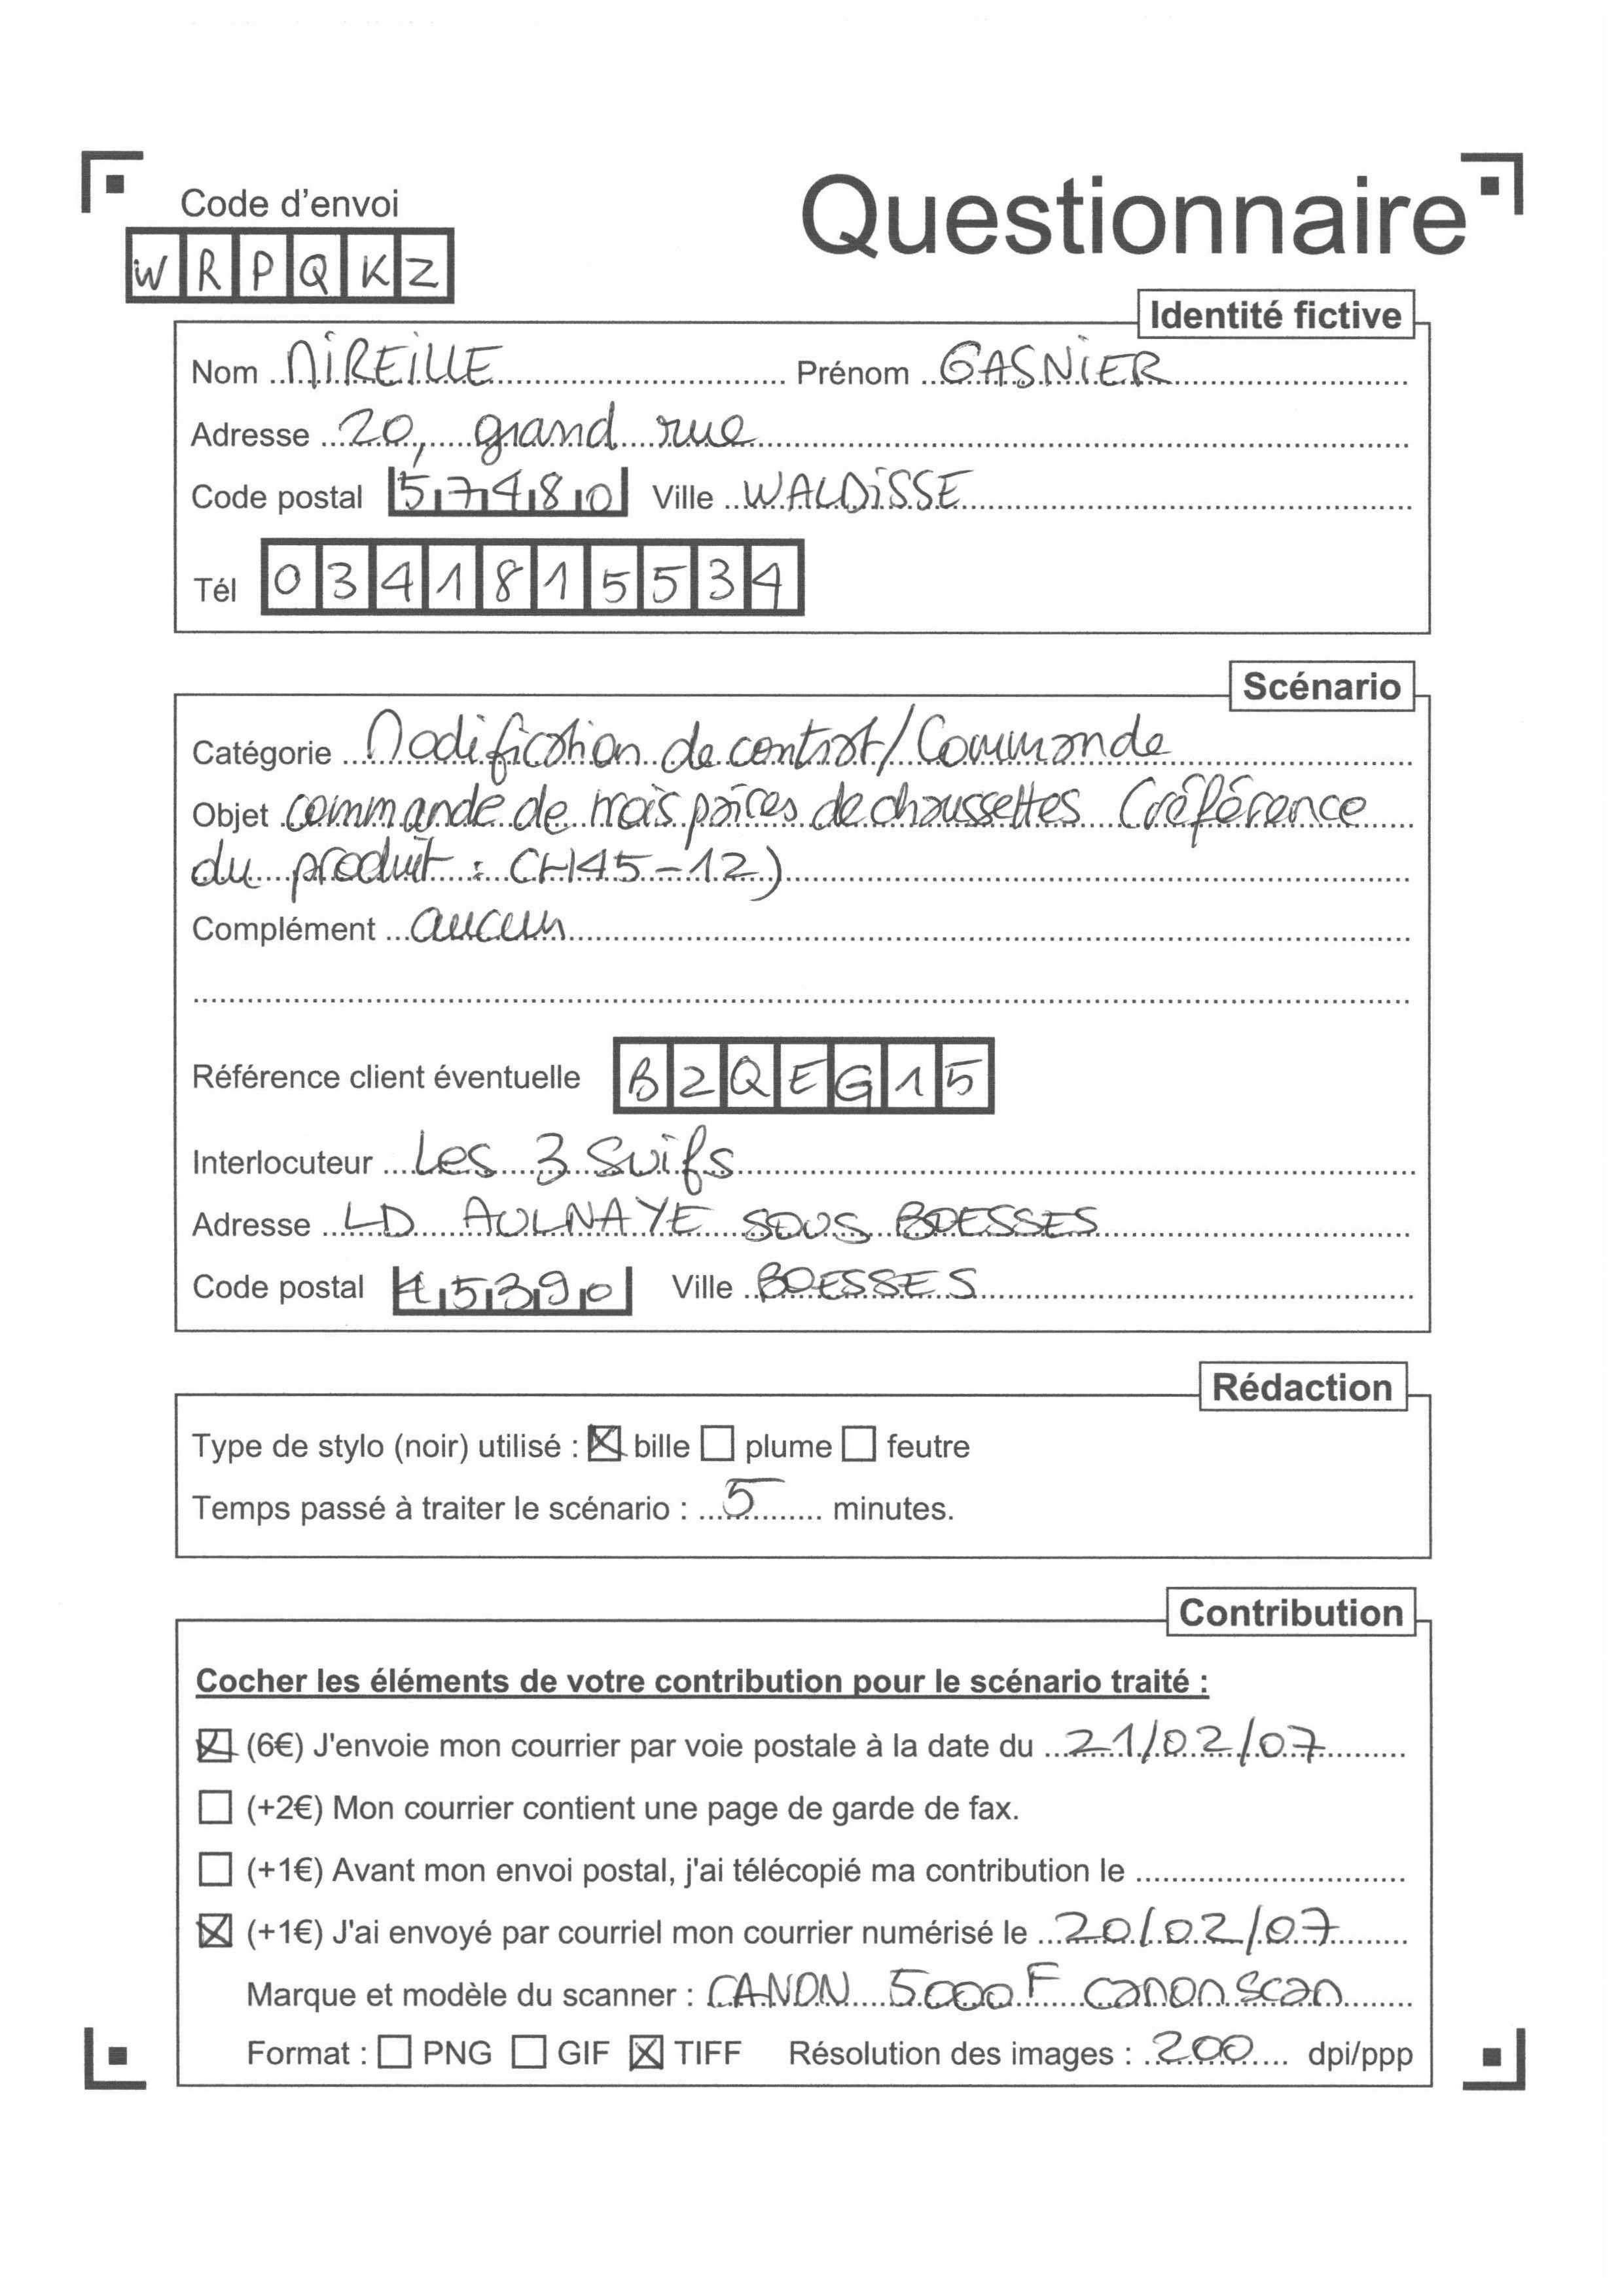 Code d'envoi
Questionnaire
WRPQKZ
Identité fictive
Nom MIREILLE Prénom GASNIER
Adresse 20, grand rue
Code postal 57480 Ville WALDISSE
Tél 0341815534
Scénario
Catégorie Modification de contrat/Commande
Objet commande de trois paires de chaussettes (référence
du produit : CH45-12)
Complément aucun
Référence client éventuelle B2QEG15
Interlocuteur Les 3 Suifs
Adresse LD AULNAYE SOUS BOESSES
Code postal 45390 Ville BOESSES
Rédaction
Type de stylo (noir) utilisé : ☒ bille ☐ plume ☐ feutre
Temps passé à traiter le scénario : 5 minutes.
Contribution
Cocher les éléments de votre contribution pour le scénario traité :
☒ (6€) J'envoie mon courrier par voie postale à la date du 21/02/07
☐ (+2€) Mon courrier contient une page de garde de fax.
☐ (+1€) Avant mon envoi postal, j'ai télécopié ma contribution le
☒ (+1€) J'ai envoyé par courriel mon courrier numérisé le 20/02/07
Marque et modèle du scanner : CANON 5000F canonscan
Format : ☐ PNG ☐ GIF ☒ TIFF Résolution des images : 200 dpi/ppp